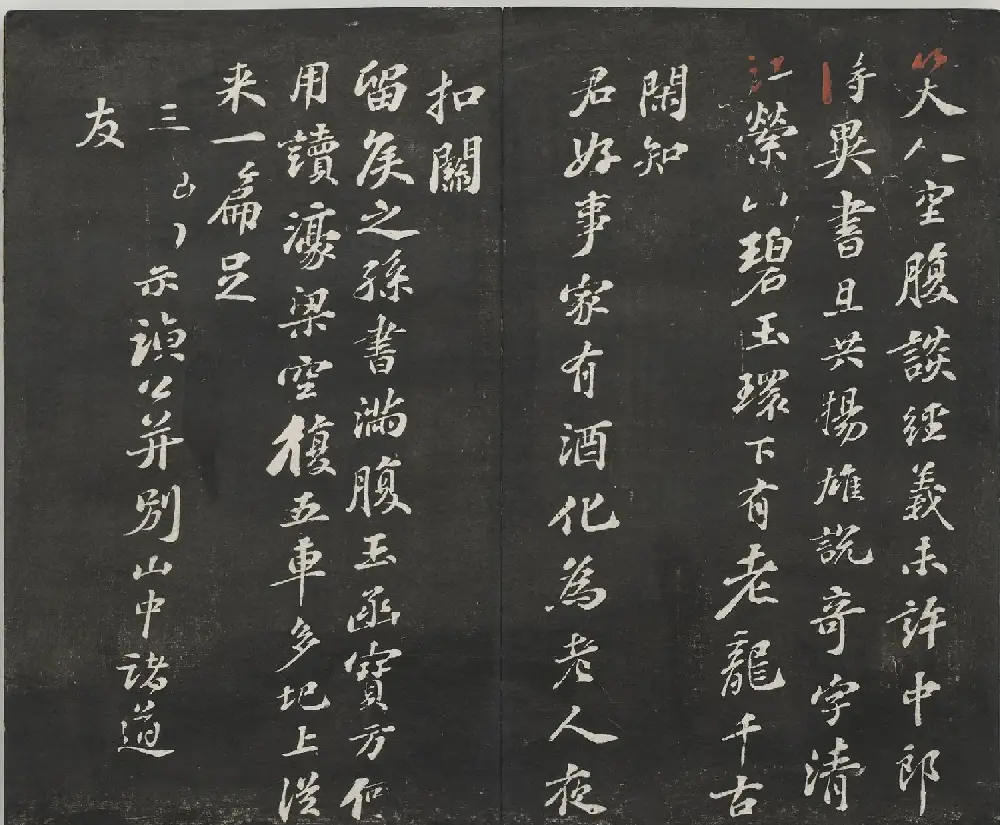 笑人空腹談經義未許中郎
得異書且共揚雄說奇字清
江縈山碧玉環下有老龍千古
閑知
君好事家有酒化為老人夜
扣關
留矦之孫書滿腹玉函寶方何
用讀濠梁空復五車多圯上從
来一篇足
三示禎公并別山中諸道
友